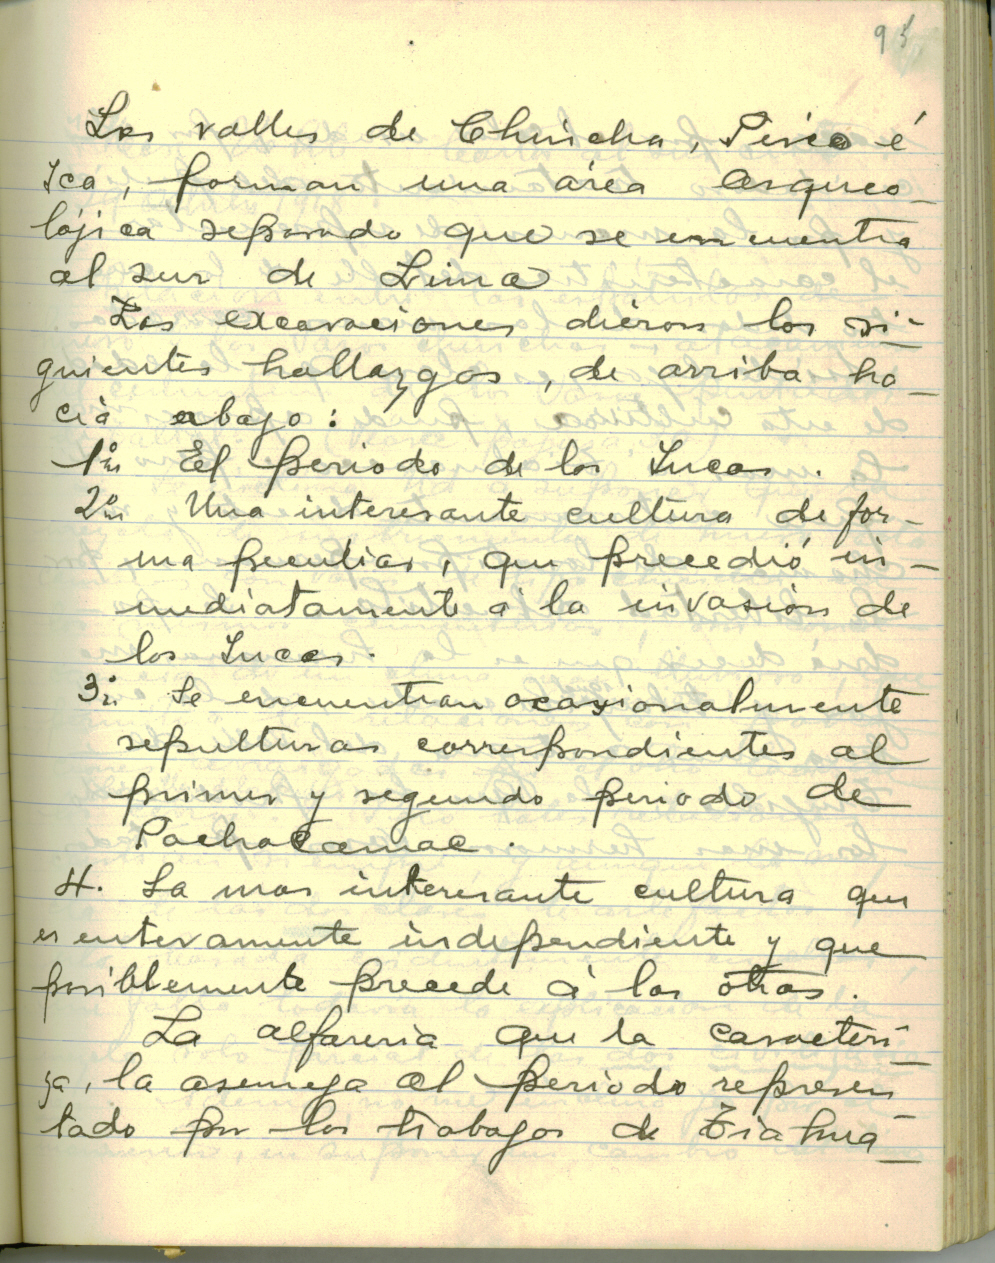 95
Los valles de Chincha, Pisco é
Ica, forman una área arqueo-
lójica separado que se encuentra
al sur de Lima
Las excavaciones diéron los si-
guientes hallazgos, de arriba ha-
cia abajo:
1º El periodo de los Incas.
2º Una interesante cultura de for-
ma peculiar, que precedió in-
mediatamente á la invasión de
los Incas.
3º Se encuentran ocasionalmente
sepulturas correspondientes al
primer y segundo periodo de
Pachacamac.
4. La mas interesante cultura que
es enteramente independiente y que
posiblemente precede á las otras.
La alfareria que la caracteri-
za, la asemeja al periodo represen-
tado por los trabajos de Tiahua-